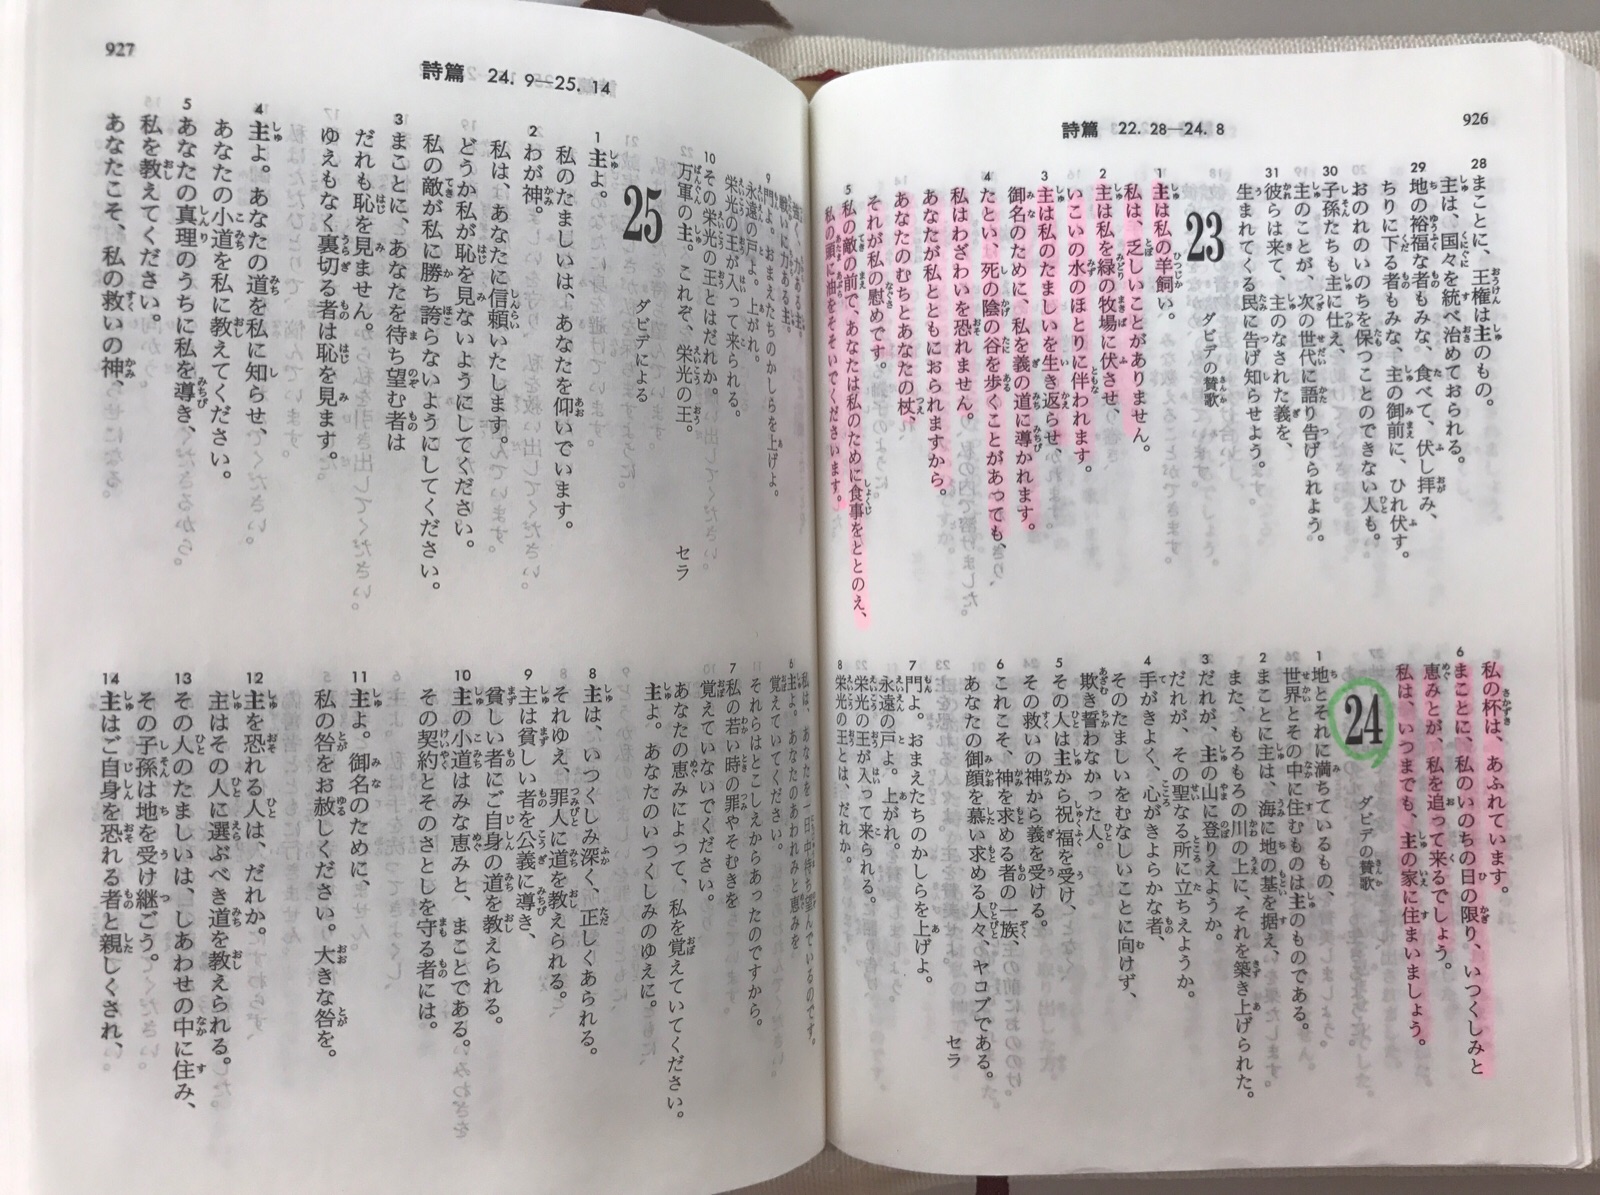 926
詩篇 22. 28—24. 8
28 まことに、王権は主のもの。
主は、国々を統べ治めておられる。
29 地の裕福な者もみな、食べて、伏し拝み、
ちりに下る者もみな、主の御前に、ひれ伏す。
おのれのいのちを保つことのできない人も。
30 子孫たちも主に仕え、
主のことが、次の世代に語り告げられよう。
31 彼らは来て、主のなされた義を、
生まれてくる民に告げ知らせよう。
23
ダビデの賛歌
1 主は私の羊飼い。
私は、乏しいことがありません。
2 主は私を緑の牧場に伏させ、
いこいの水のほとりに伴われます。
3 主は私のたましいを生き返らせ、
御名のために、私を義の道に導かれます。
4 たとい、死の陰の谷を歩くことがあっても、
私はわざわいを恐れません。
あなたが私とともにおられますから。
あなたのむちとあなたの杖、
それが私の慰めです。
5 私の敵の前で、あなたは私のために食事をととのえ、
私の頭に油をそそいでくださいます。
私の杯は、あふれています。
6 まことに、私のいのちの日の限り、いつくしみと
恵みとが、私を追って来るでしょう。
私は、いつまでも、主の家に住まいましょう。
24
ダビデの賛歌
1 地とそれに満ちているもの、
世界とその中に住むものは主のものである。
2 まことに主は、海に地の基を据え、
また、もろもろの川の上に、それを築き上げられた。
3 だれが、主の山に登りえようか。
だれが、その聖なる所に立ちえようか。
4 手がきよく、心がきよらかな者、
そのたましいをむなしいことに向けず、
欺き誓わなかった人。
5 その人は主から祝福を受け、
その救いの神から義を受ける。
6 これこそ、神を求める者の一族、
あなたの御顔を慕い求める人々、ヤコブである。
セラ
7 門よ。おまえたちのかしらを上げよ。
永遠の戸よ。上がれ。
栄光の王が入って来られる。
8 栄光の王とは、だれか。
927
詩篇 24. 9—25. 14
戦いに力ある主。
9 門よ。おまえたちのかしらを上げよ。
永遠の戸よ。上がれ。
栄光の王が入って来られる。
10 その栄光の王とはだれか。
万軍の主。これぞ、栄光の王。
セラ
25
ダビデによる
1 主よ。
私のたましいは、あなたを仰いでいます。
2 わが神。
私は、あなたに信頼いたします。
どうか私が恥を見ないようにしてください。
私の敵が私に勝ち誇らないようにしてください。
3 まことに、あなたを待ち望む者は
だれも恥を見ません。
ゆえもなく裏切る者は恥を見ます。
4 主よ。あなたの道を私に知らせ、
あなたの小道を私に教えてください。
5 あなたの真理のうちに私を導き、
私を教えてください。
あなたこそ、私の救いの神、
私は、あなたを一日中待ち望んでいるのです。
6 主よ。あなたのあわれみと恵みを
覚えていてください。
それらはとこしえからあったのですから。
7 私の若い時の罪やそむきを
覚えていないでください。
あなたの恵みによって、私を覚えていてください。
主よ。あなたのいつくしみのゆえに。
8 主は、いつくしみ深く、正しくあられる。
それゆえ、罪人に道を教えられる。
9 主は貧しい者を公義に導き、
貧しい者にご自身の道を教えられる。
10 主の小道はみな恵みと、まことである。
その契約とそのさとしを守る者には。
11 主よ。御名のために、
私の咎をお赦しください。大きな咎を。
12 主を恐れる人は、だれか。
主はその人に選ぶべき道を教えられる。
13 その人のたましいは、しあわせの中に住み、
その子孫は地を受け継ごう。
14 主はご自身を恐れる者と親しくされ、